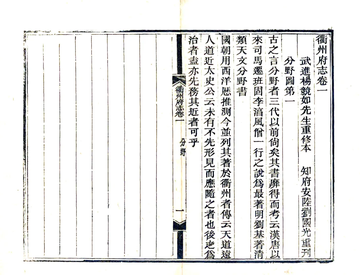 衢州府志卷一
武進楊競如先生重修本　知府安陸劉國光重刊
分野圖第一
古之言分野者三代以前尚矣其書靡得而考云漢唐以
來司馬遷班固李淳風僧一行之說爲最著明劉基著清
類天文分野書
國朝用西洋厯推測今並列其著於衢州者傳云天道遠
人道近太史公云未有不先形見而應隨之者也後之爲
治者盍亦先務其近者可乎
衢州府志卷一
分野
一